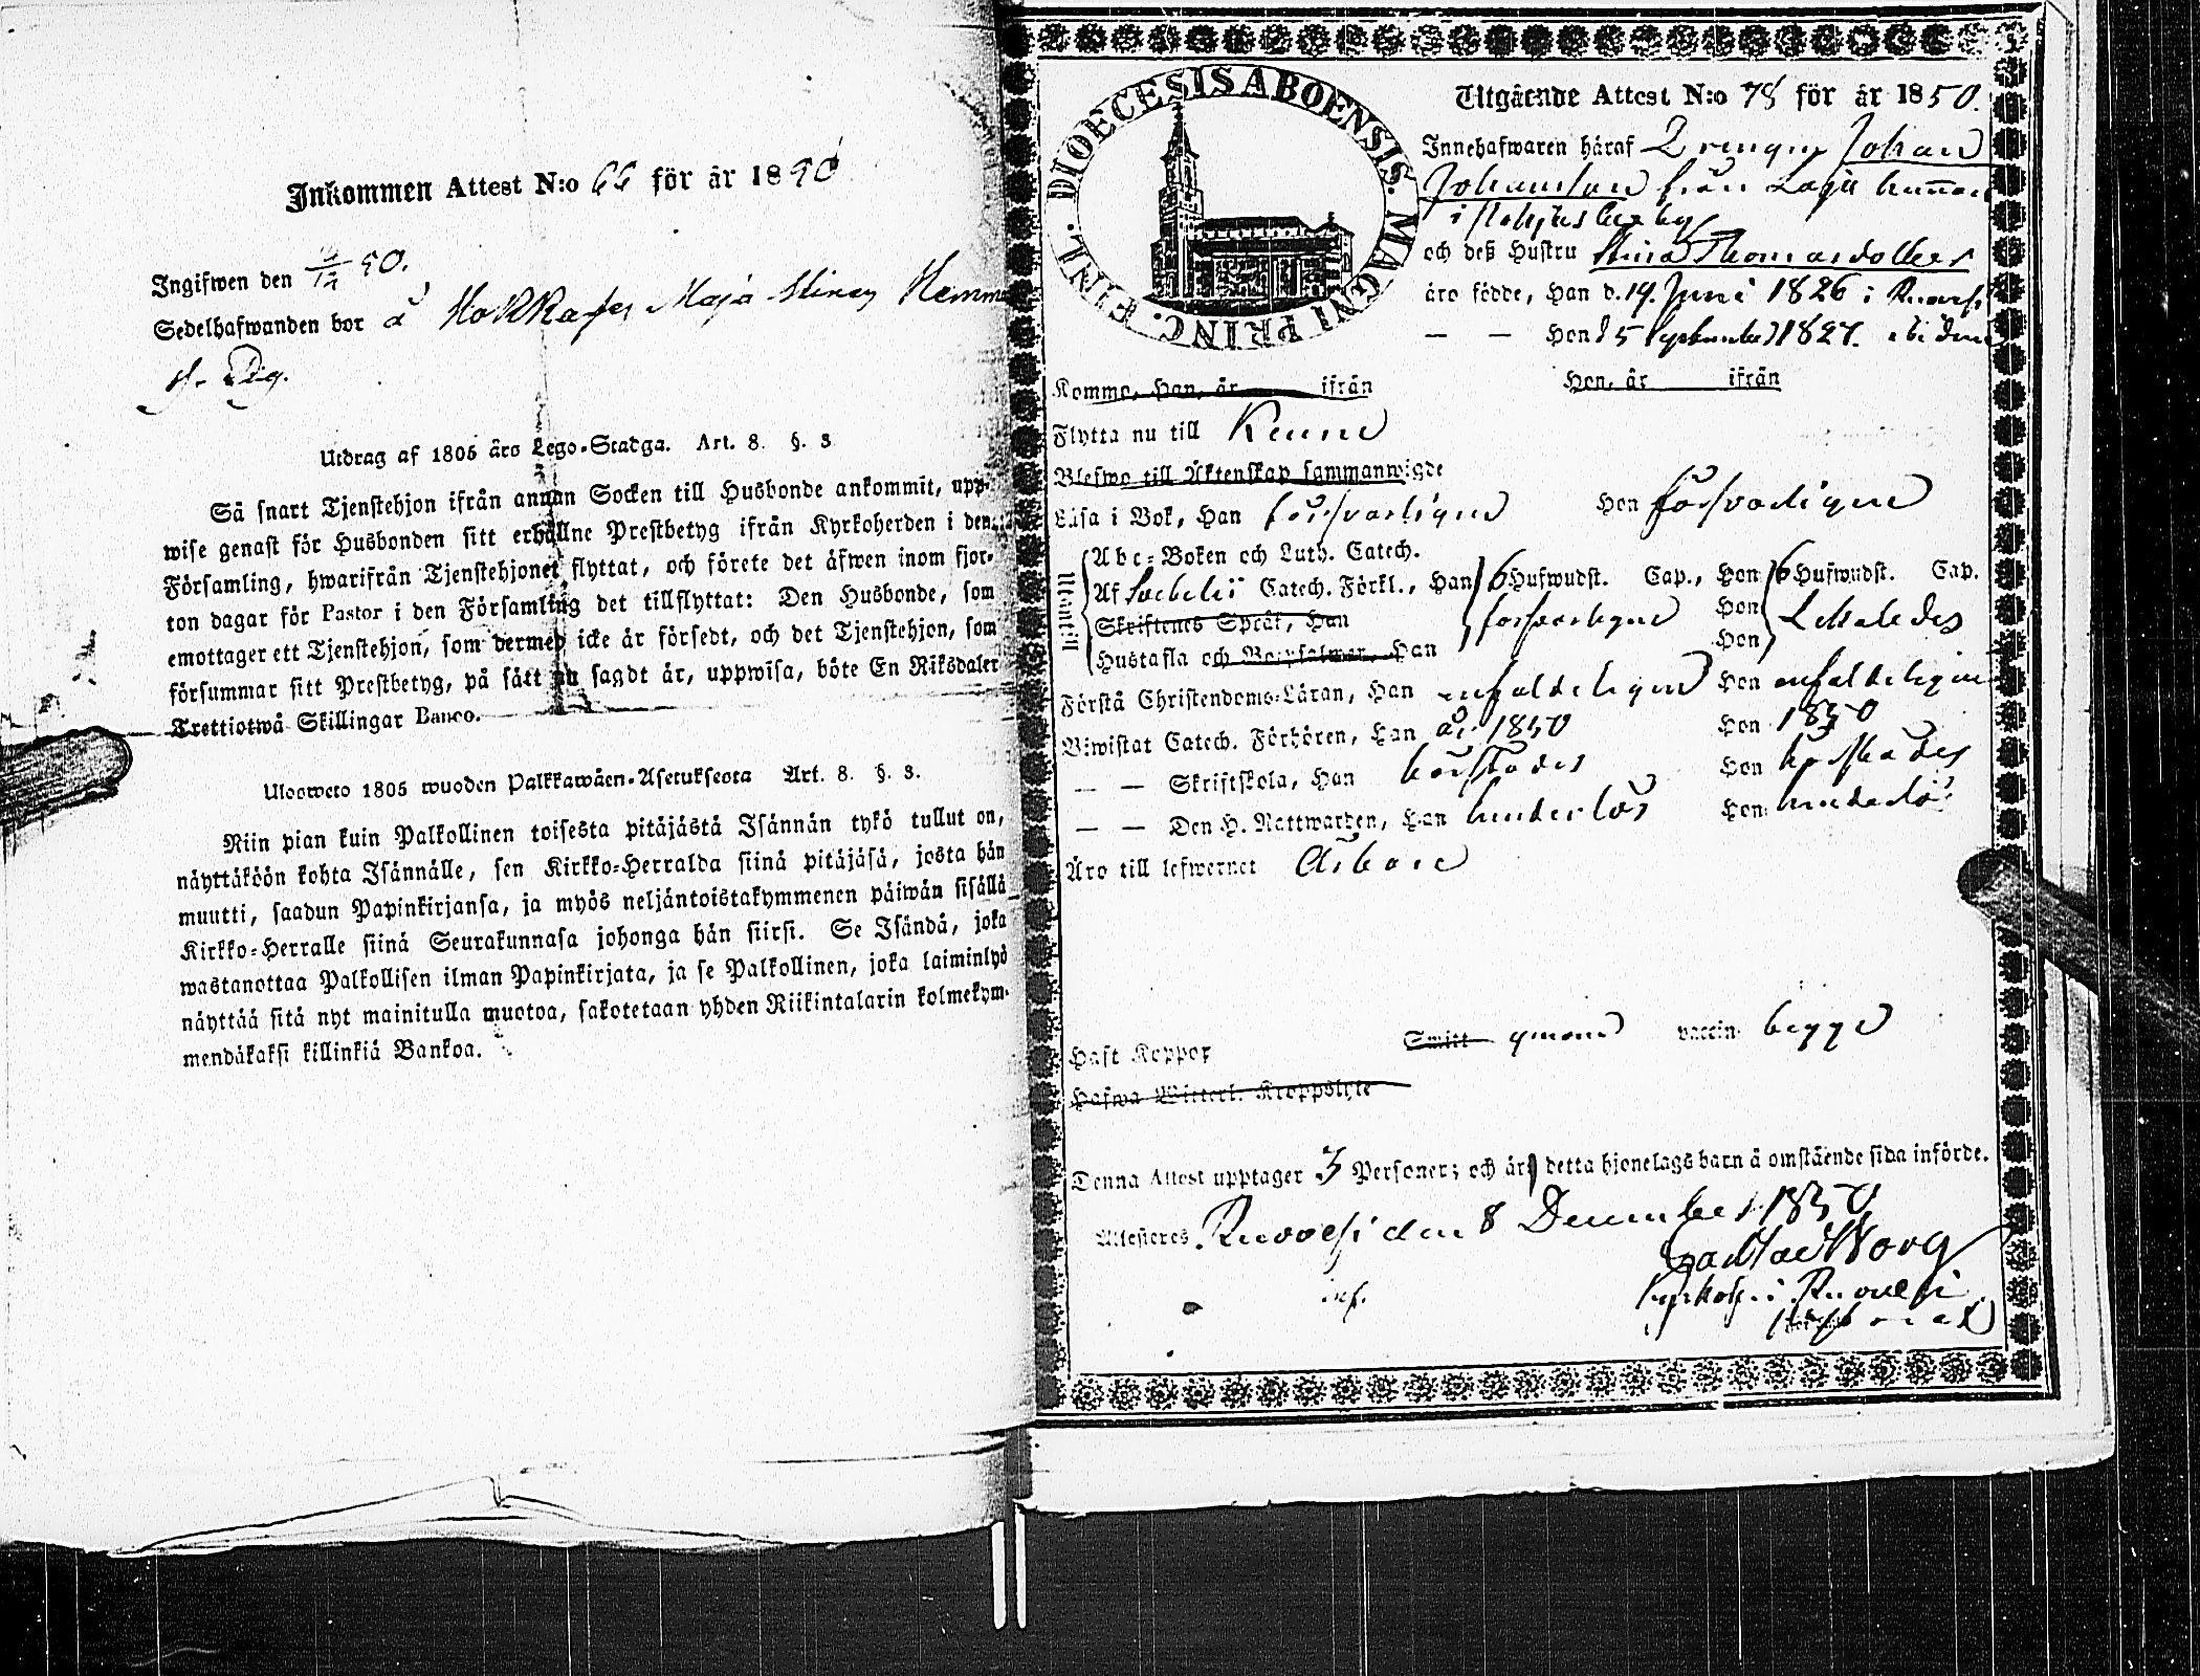 Inkommen Attest N:o 66 för år 1850
Ingifwen den 50.
Sedelhafwanden bor å Maja Stinas Hemm
Utdrag af 1805 års Lego-Stadga. Art. 8. §. 3
Så snart Tjenstehjon ifrån annan Socken till Husbonde ankommit, upp-
wise genast för Husbonden sitt erhållne Prestbetyg ifrån Kyrkoherden i den
Församling, hwarifrån Tjenstehjonet flyttat, och förete det äfwen inom fjor-
ton dagar för Pastor i den Församling det tillflyttat: Den Husbonde, som
emottager ett Tjenstehjon, som dermed icke är försedt, och det Tjenstehjon, som
försummar sitt Prestbetyg, på sätt nu sagdt är, uppwisa, böte En Riksdaler
Trettiotwå Skillingar Banco.
Ulosweto 1805 wuoden Palkkawäen-Asetuksesta Art. 8. §. 3.
Niin pian kuin Palkollinen toisesta pitäjästä Isännän tykö tullut on,
näyttäköön kohta Isännälle, sen Kirkko-Herralda siinä pitäjäsä, josta hän
muutti, saadun Papinkirjansa, ja myös neljäntoistakymmenen päiwän sisällä
Kirkko-Herralle siinä Seurakunnasa johonga hän siirsi. Se Isändä, joka
wastanottaa Palkollisen ilman Papinkirjata, ja se Palkollinen, joka laiminlyö
näyttää sitä nyt mainitulla muotoa, sakotetaan yhden Riikintalarin kolmekym-
mendäkaksi killinkiä Bankoa.
DIOECESIS ABOENSIS. MAGNI PRINC. FINL.
Utgående Attest N:o 78 för år 1850.
Innehafwaren häraf Drengen Johan
Johansson från Laju
i by
och deß Hustru Stina Thomasdotter
äro födde, Han d. 14. Juni 1826 i Ruovesi
— — Hon 15 September 1827. ibidem
Komne, Han, år ifrån Hon, år ifrån
Flytta nu till
Blefwo till Äktenskap sammanwigde
Läsa i Bok, Han försvarligen Hon försvarligen
Utantill
Abc-Boken och Luth. Catech.
Af Catech. Förkl., Han 6 Hufwudst. Cap., Hon 6 Hufwudst. Cap.
Skriftenes Språk, Han försvarligen Hon Letaledes
Hustafla och Botpsalmer, Han Hon
Förstå Christendoms-Läran, Han enfaldeligen Hon enfaldeligen
Biwistat Catech. Förhören, Han år 1850 Hon 1850
— — Skriftskola, Han härstädes Hon härstädes
— — Den H. Nattwarden, Han hinderlös Hon hinderlös
Äro till lefwernet Ärbare
Haft Koppor Smitt genom vaccin begge
Hafwa Witterl. Kroppslyte
Denna Attest upptager 3 Personer; och äro detta hjonelags barn å omstående sida införde.
Attesteres Ruovesi den 8 December 1850
Gustaf Borg
Kyrkoh. i Ruovesi